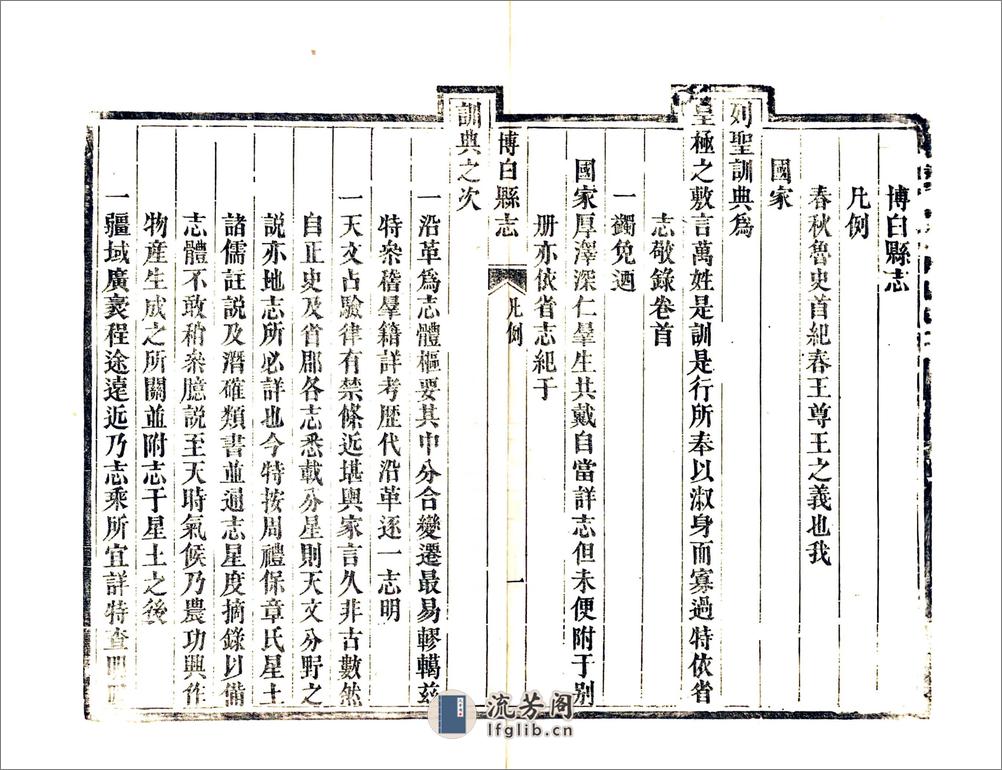 博白縣志
凡例
春秋魯史首紀春王尊王之義也我
國家
列聖訓典爲
皇極之敷言萬姓是訓是行所奉以淑身而寡過特依省
志敬錄卷首
一蠲免迺
國家厚澤深仁羣生共戴自當詳志但未便附于别
册亦依省志紀于
博白縣志
凡例
一
訓典之次
一沿革爲志體樞要其中分合變遷最易轇轕兹
特叅稽羣籍詳考歷代沿革逐一志明
一天文占驗律有禁條近堪輿家言久非古數然
自正史及省郡各志悉載分星則天文分野之
説亦地志所必詳也今特按周禮保章氏星土
諸儒註説及潛確類書並通志星度摘錄以備
志體不敢稍叅臆説至天時氣候乃農功興作
物產生成之所關並附志于星土之後
一疆域廣袤程途遠近乃志乘所宜詳特查
流芳阁
lfglib.cn